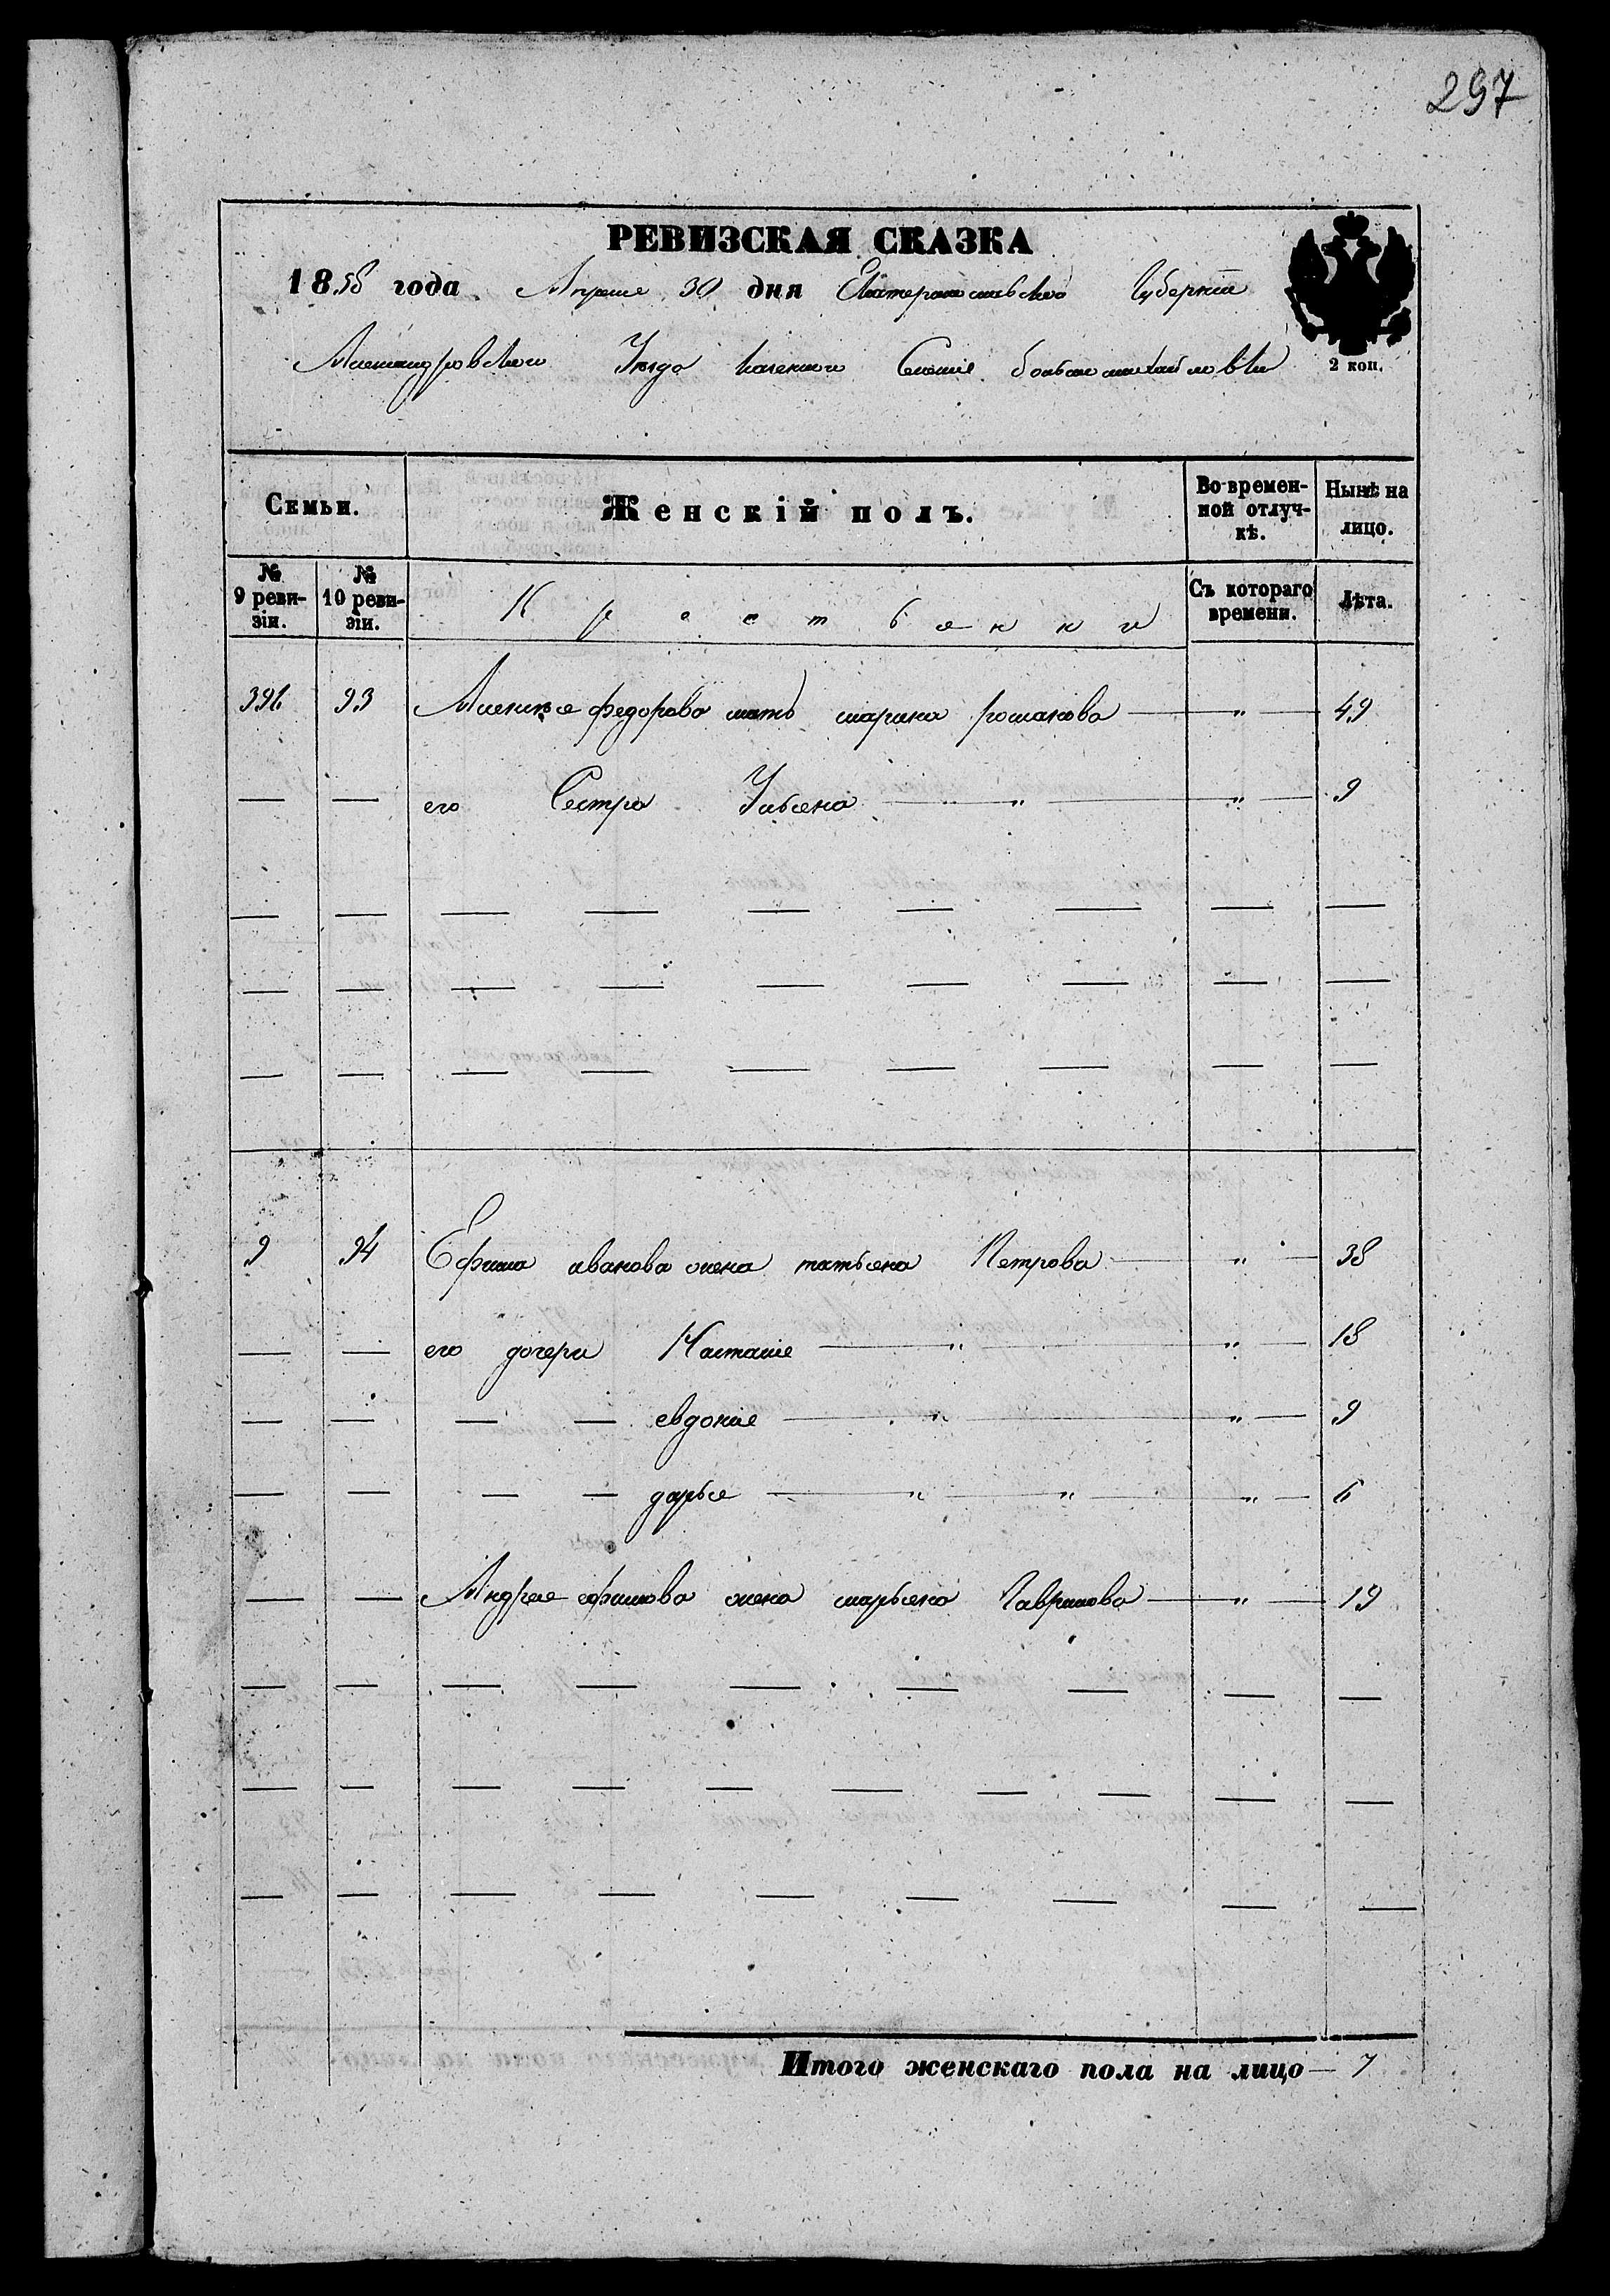 297
РЕВИЗСКАЯ СКАЗКА
1858 года Апреля 30 дня Екатеринославской Губернии
Александровского Уезда казенного Селения большемихайловки
2 коп.
Семьи. Женскій полъ. Во временной отлучкѣ. Нынѣ на лицо.
№ 9 ревизіи. № 10 ревизіи. Крестьянки Съ котораго времени. Лѣта.
391 93 Алексея федорова мать марина романова — " — 49
— — его Сестра Ульяна — " — " — 9
9 94 Ефима иванова жена татьяна Петрова — " — 38
— — его дочери Настасия — " — " — 18
— — — — евдокия — " — " — 9
— — — — дарья — " — " — " — 6
— — Андрея ефимова жена марьяна Гаврилова — " — 19
Итого женскаго пола на лицо — 7